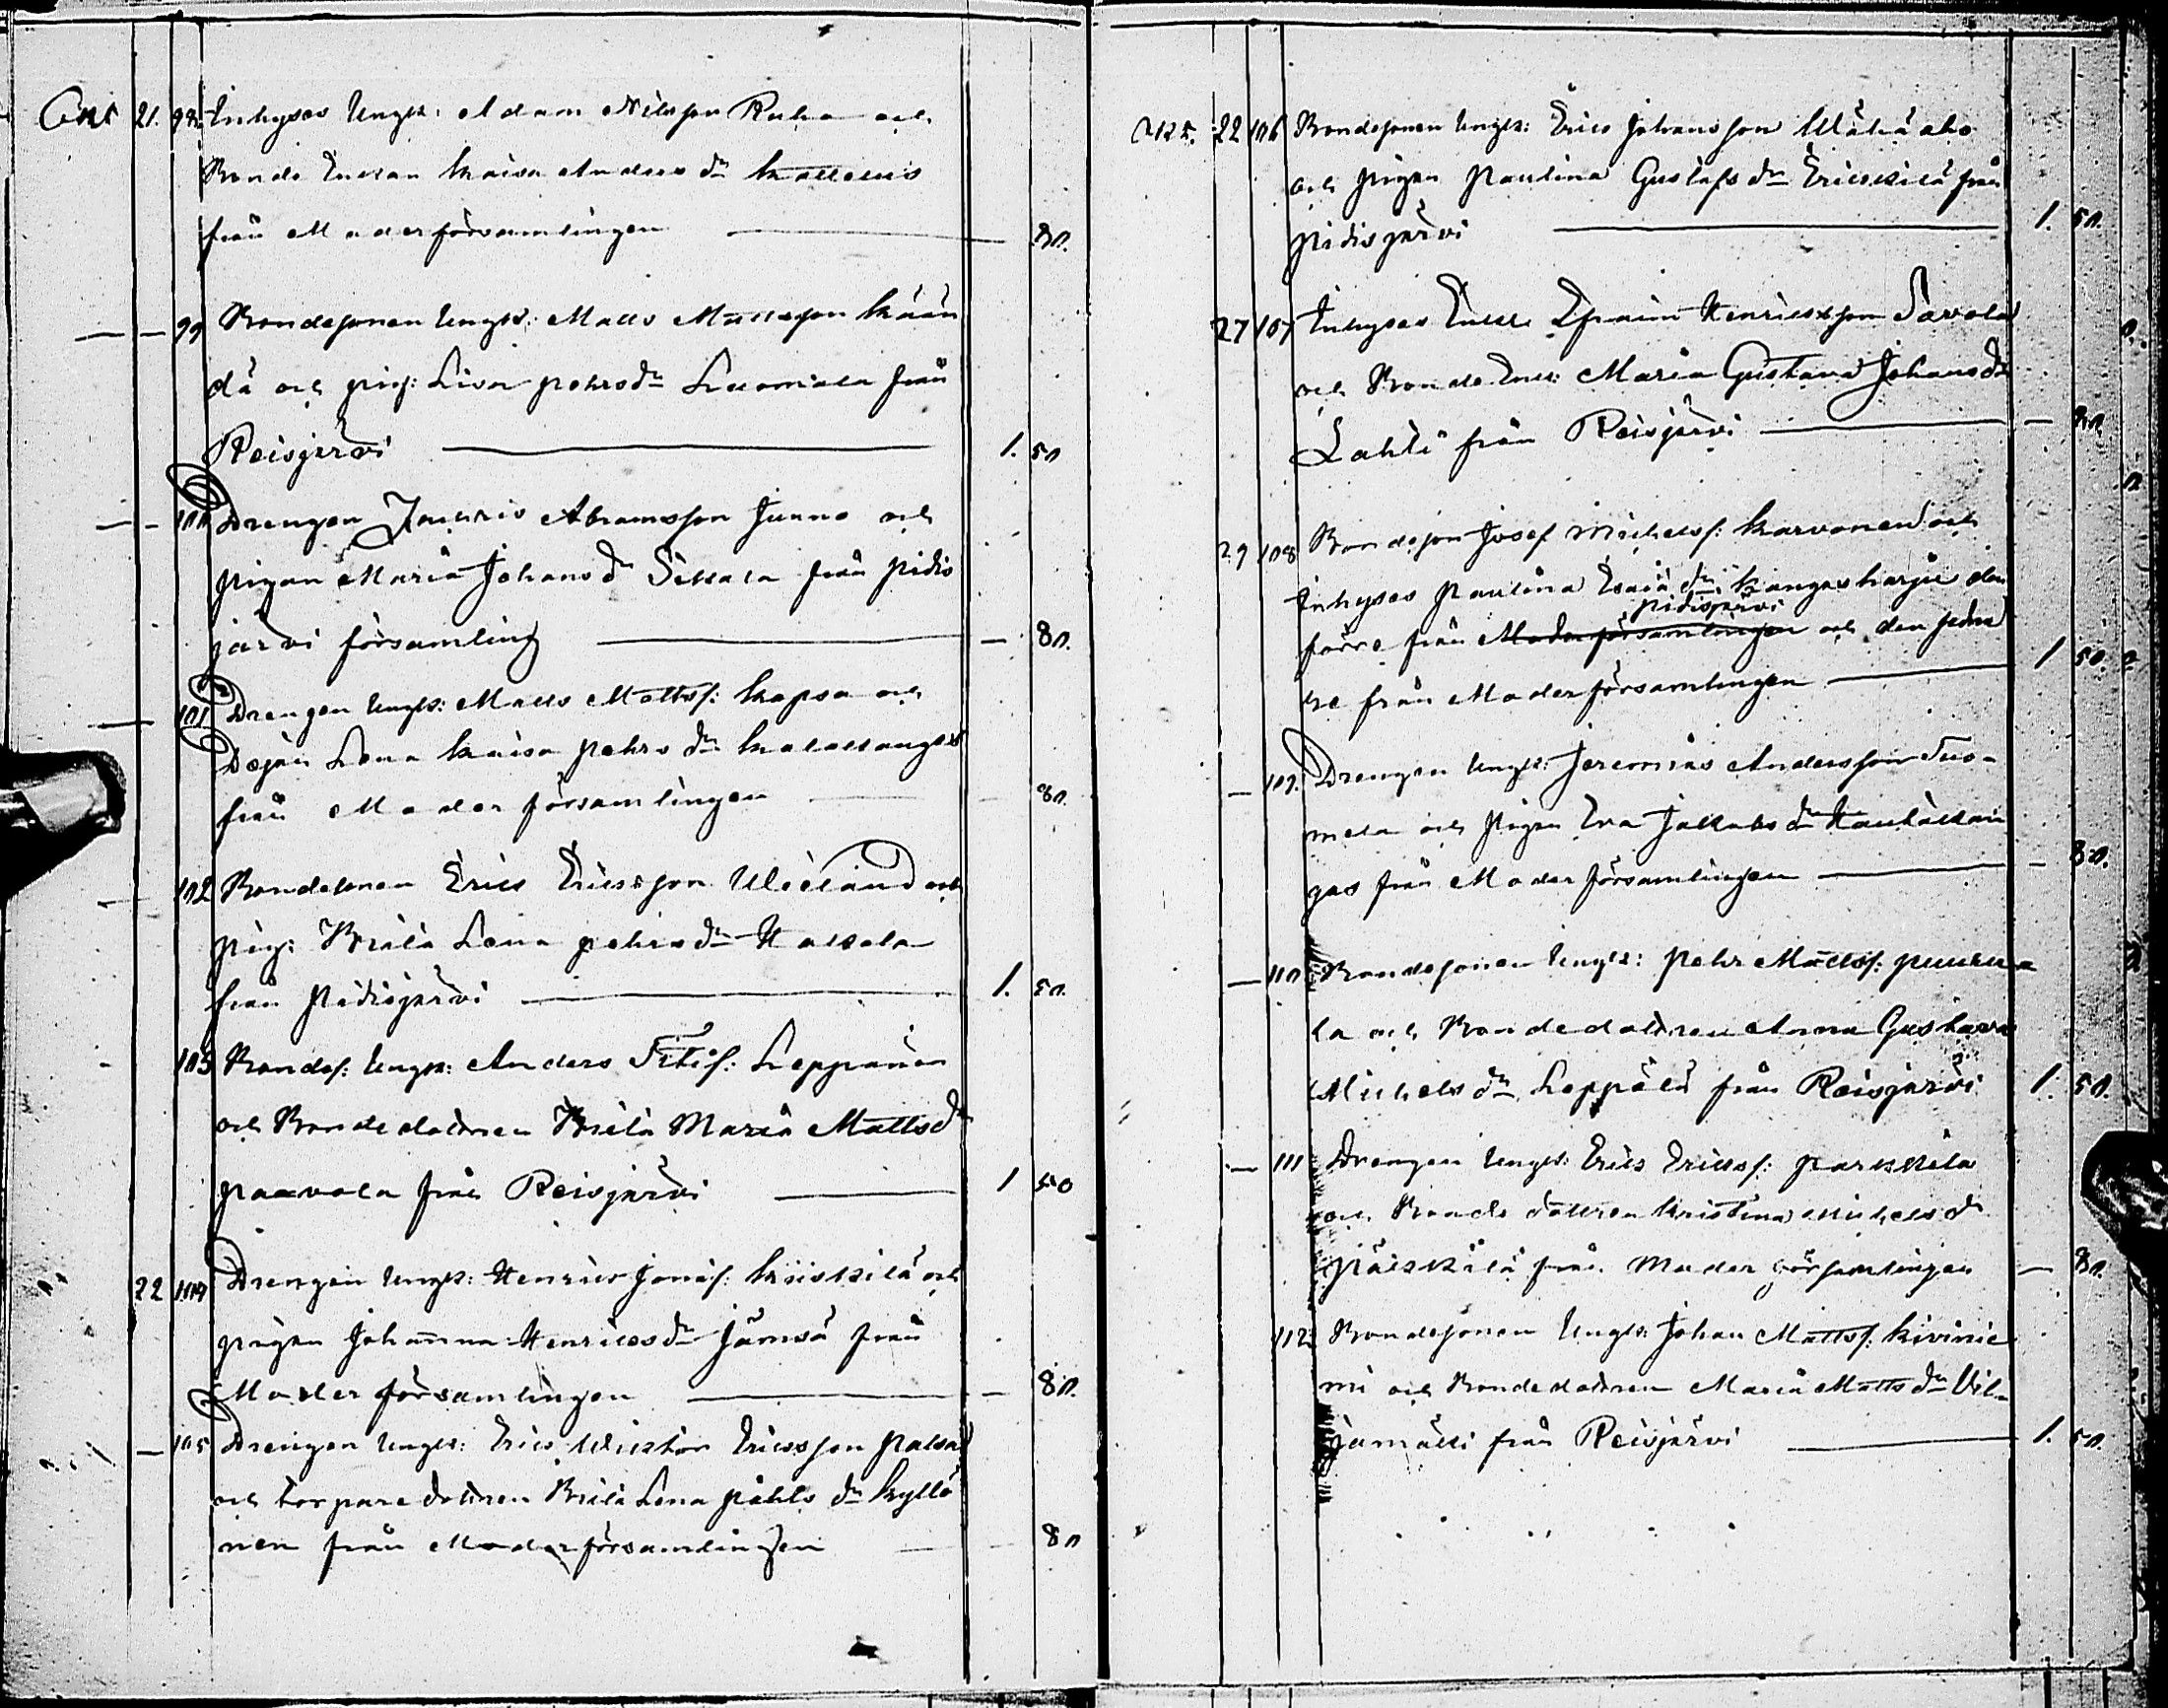 Oct 21. 98. Inhyses Ungk: Adam Nilsson Raha och
Bonde Enkan Kaisa Anders dr Kallenis
från Moderförsamlingen — 80.
— — 99 Bondesonen Ungk: Matts Mattsson Kään
dä och pig: Lisa Pehrsdr Luomala från
Reisjärvi — 1. 50
— — 100 Drengen Abramsson Junno och
pigan Maria Johansd från Pidis
järvi församling — 80.
— 101 Drengen Ungk: Matts Mattsf: Kapsa och
Dejan Lena Kaisa Pehrs dr
från Moder församlingen — 80.
— 102 Bondesonen Erics Ericsson och
pig: Brita Lena Pehrs dr
från Pidisjärvi — 1. 50.
- 103 Bondes: Ungk: Anders Leppänen
och Bondedottren Brita Maria Mattsd
Paavola från Reisjärvi — 1 50
22 104 Drengen Ungk: Henrics Jonas: Kriiskilä och
pigan Johanna Henricsdr Jämsä från
Moder församlingen — 80.
— 105 Drengen Ungk: Erics Wicktor Ericsson Palsa
och torpare dottren Brita Lena Påhls dr Kyllö
nen från Moderförsamlingen — 80
Oct. 22 106 Bondesonen Ungk: Erics Johansson Wähä aho
och pigan Paulina Gustafs dr Erickilä från
Pidisjärvi — 1. 50.
27 107 Inhyses Enkl: Efraim Henricsson Savola
och Bonde Enk: Maria Gustava Johansdr
Lahti från Reisjärvi — 80
29 108 Bondeson Josef Michelsf: Karvonen och
Inhyses Paulina Esaiä dr Kangasharju den
Pidisjärvi
förre från Moderförsamlingen och den sedna
re från Moderförsamlingen — 1 50.
— 109. Drengen Ungk: Jeremias Andersson Tuo-
mela och pigan Eva Jakobs dr Hautakan
gas från Moder församlingen — 80.
— 110 Bondesonen Ungk: Pehr Mattsf:
la och Bondedottren Anna Gustava
Michels dr Leppälä från Reisjärvi 1. 50.
— 111 Drengen Ungk: Erics Ericsf: Parkkila
och Bonde dottren Kristina Michelsd
från Moder församlingen — 80.
112 Bondesonen Ungk: Johan Mattsf: Kivinie
mi och Bondedottren Maria Matts dr Vil-
jamäki från Reisjärvi — 1. 50.